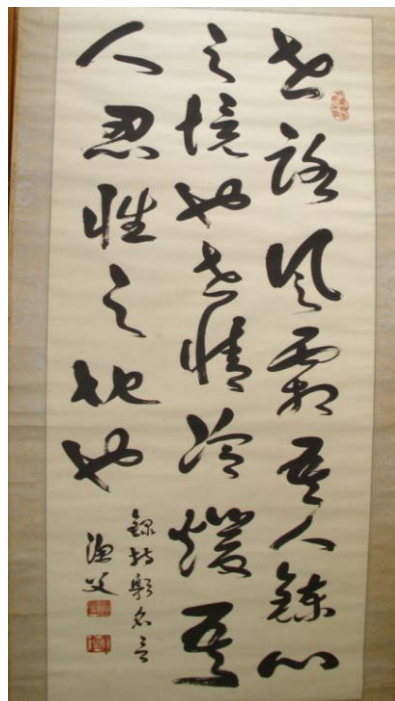 世路風霜吾人錬心
之境也世情冷煖吾
人忍性之地也
錄名言
漁父